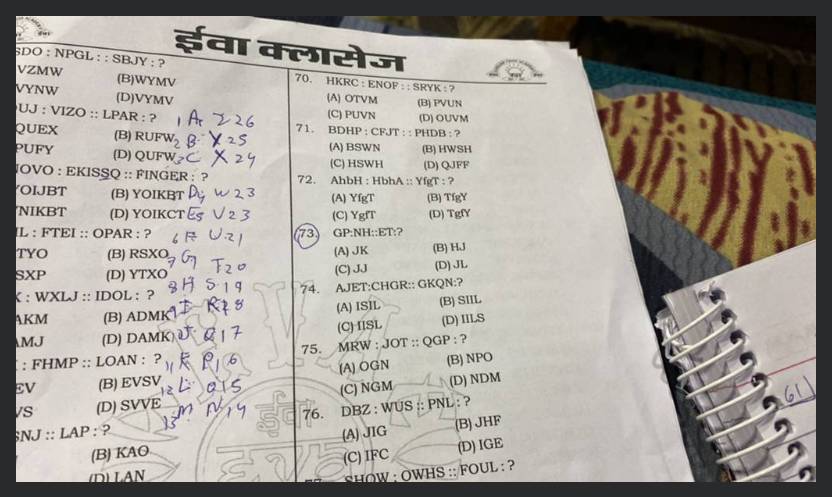 ईवा क्लासेज
SDO : NPGL : : SBJY : ?
VZMW
(B)WYMV
VYNW
(D)VYMV
UJ : VIZO :: LPAR : ?
QUEX
(B) RUFW
PUFY
(D) QUFW
OVO : EKISSQ :: FINGER : ?
OIJBT
(B) YOIKBT
NIKBT
(D) YOIKCT
IL : FTEI :: OPAR : ?
TYO
(B) RSXO
SXP
(D) YTXO
: WXLJ :: IDOL : ?
AKM
(B) ADMK
AMJ
(D) DAMK
: FHMP :: LOAN : ?
EV
(B) EVSV
VS
(D) SVVE
SNJ :: LAP : ?
(B) KAO
(D) LAN
1 A Z 26
2 B Y 25
3 C X 24
D 4 W 23
E 5 V 23
6 F U 21
7 G T 20
8 H S 19
9 I R 28
10 J Q 17
11 K P 16
12 L O 15
13 M N 14
70. HKRC : ENOF : : SRYK : ?
(A) OTVM (B) PVUN
(C) PUVN (D) OUVM
71. BDHP : CFJT : : PHDB : ?
(A) BSWN (B) HWSH
(C) HSWH (D) QJFF
72. AhbH : HbhA :: YfgT : ?
(A) YfgT (B) TfgY
(C) YgfT (D) TgfY
73. GP:NH::ET:?
(A) JK (B) HJ
(C) JJ (D) JL
74. AJET:CHGR:: GKQN:?
(A) ISIL (B) SIIL
(C) IISL (D) IILS
75. MRW : JOT :: QGP : ?
(A) OGN (B) NPO
(C) NGM (D) NDM
76. DBZ : WUS :: PNL : ?
(A) JIG (B) JHF
(C) IFC (D) IGE
SHOW : OWHS :: FOUL : ?